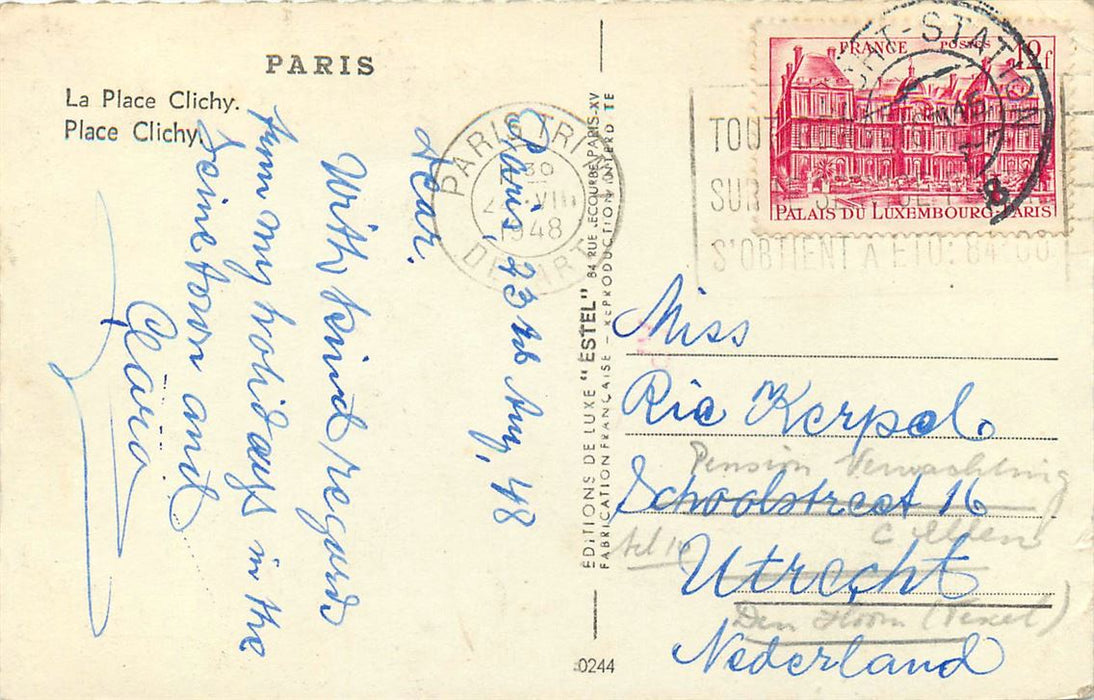 PARIS
La Place Clichy.
Place Clichy.
Paris, 23 Aug. 48
Dear.
With kind regards
from my holidays in the
Seine town and
Claria
PARIS TRI
30
24 VIII
1948
DEPART
ÉDITIONS DE LUXE "ESTEL" 84 RUE LECOURBE PARIS-XV
FABRICATION FRANÇAISE - REPRODUCTION INTERDITE
0244
FRANCE POSTES 12f
PALAIS DU LUXEMBOURG-PARIS
CHT-STATION
8
TOUT
SUR
S'OBTIENT A ETO: 84.00
Miss
Ria Kerpel.
Pension Verwachting
Schoolstreet 16
Utrecht
Den Hoorn (Texel)
Nederland